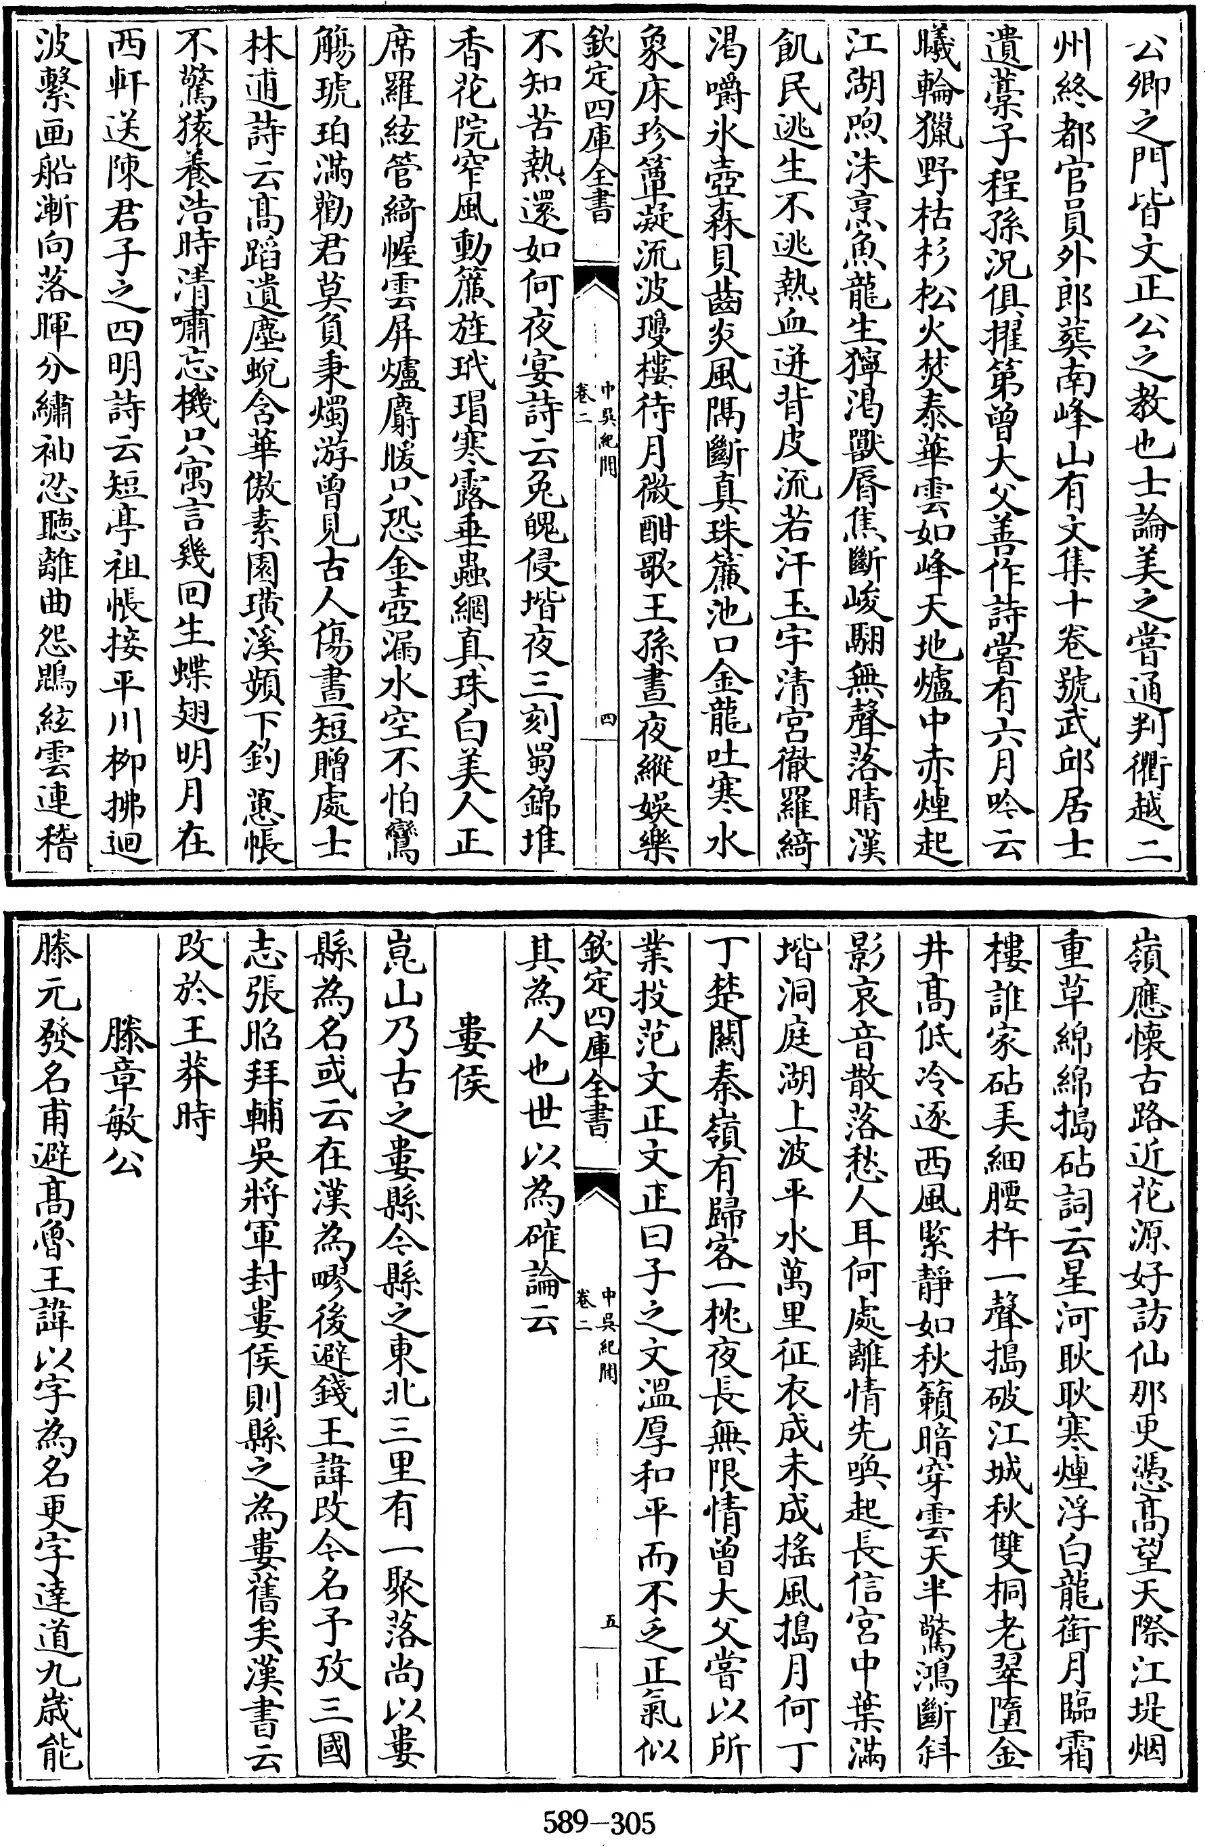 公卿之門皆文正公之教也士論美之嘗通判衢越二
州終都官員外郎葬南峰山有文集十卷號武邱居士
遺藁子程孫況俱擢第曾大父善作詩嘗有六月吟云
曦輪獵野枯杉松火焚泰華雲如峰天地爐中赤煙起
江湖喣沫烹魚龍生獰渴獸脣焦斷峻翮無聲落晴漢
飢民逃生不逃熱血迸背皮流若汗玉宇清宮徹羅綺
渴嚼氷壺森貝齒炎風隅斷真珠簾池口金龍吐寒水
象床珍簟凝流波瓊樓待月微酣歌王孫晝夜縱娛樂
欽定四庫全書
中吳紀聞
卷二
四
不知苦熱還如何夜宴詩云兔魄侵堦夜三刻蜀錦堆
香花院窄風動簾旌玳瑁寒露垂蟲網真珠白美人正
席羅絃管綺幄雲屏爐麝暖只恐金壺漏水空不怕鸞
觴琥珀滿勸君莫負秉燭游曾見古人傷晝短贈處士
林逋詩云高蹈遺塵蛻含華傲素園璜溪頻下釣蕙帳
不驚猿養浩時清嘯忘機只寓言幾回生蝶翅明月在
西軒送陳君子之四明詩云短亭祖帳接平川栁拂迴
波繫画船漸向落暉分繡袖忍聽離曲怨鵾絃雲連稽
嶺應懷古路近花源好訪仙那更憑高望天際江堤烟
重草綿綿搗砧詞云星河耿耿寒煙浮白龍銜月臨霜
樓誰家砧美細腰杵一聲搗破江城秋雙桐老翠墮金
井高低冷逐西風緊靜如秋籟暗穿雲天半驚鴻斷斜
影哀音散落愁人耳何處離情先喚起長信宮中葉滿
堦洞庭湖上波平水萬里征衣成未成搖風搗月何丁
丁楚關秦嶺有歸客一枕夜長無限情曾大父嘗以所
業投范文正文正曰子之文溫厚和平而不乏正氣似
欽定四庫全書
中吳紀聞
卷二
五
其為人也世以為確論云
婁侯
崑山乃古之婁縣今縣之東北三里有一聚落尚以婁
縣為名或云在漢為𤴁後避錢王諱改今名予攷三國
志張昭拜輔吳將軍封婁侯則縣之為婁舊矣漢書云
改於王莽時
滕章敏公
滕元發名甫避高魯王諱以字為名更字達道九歲能
589-305